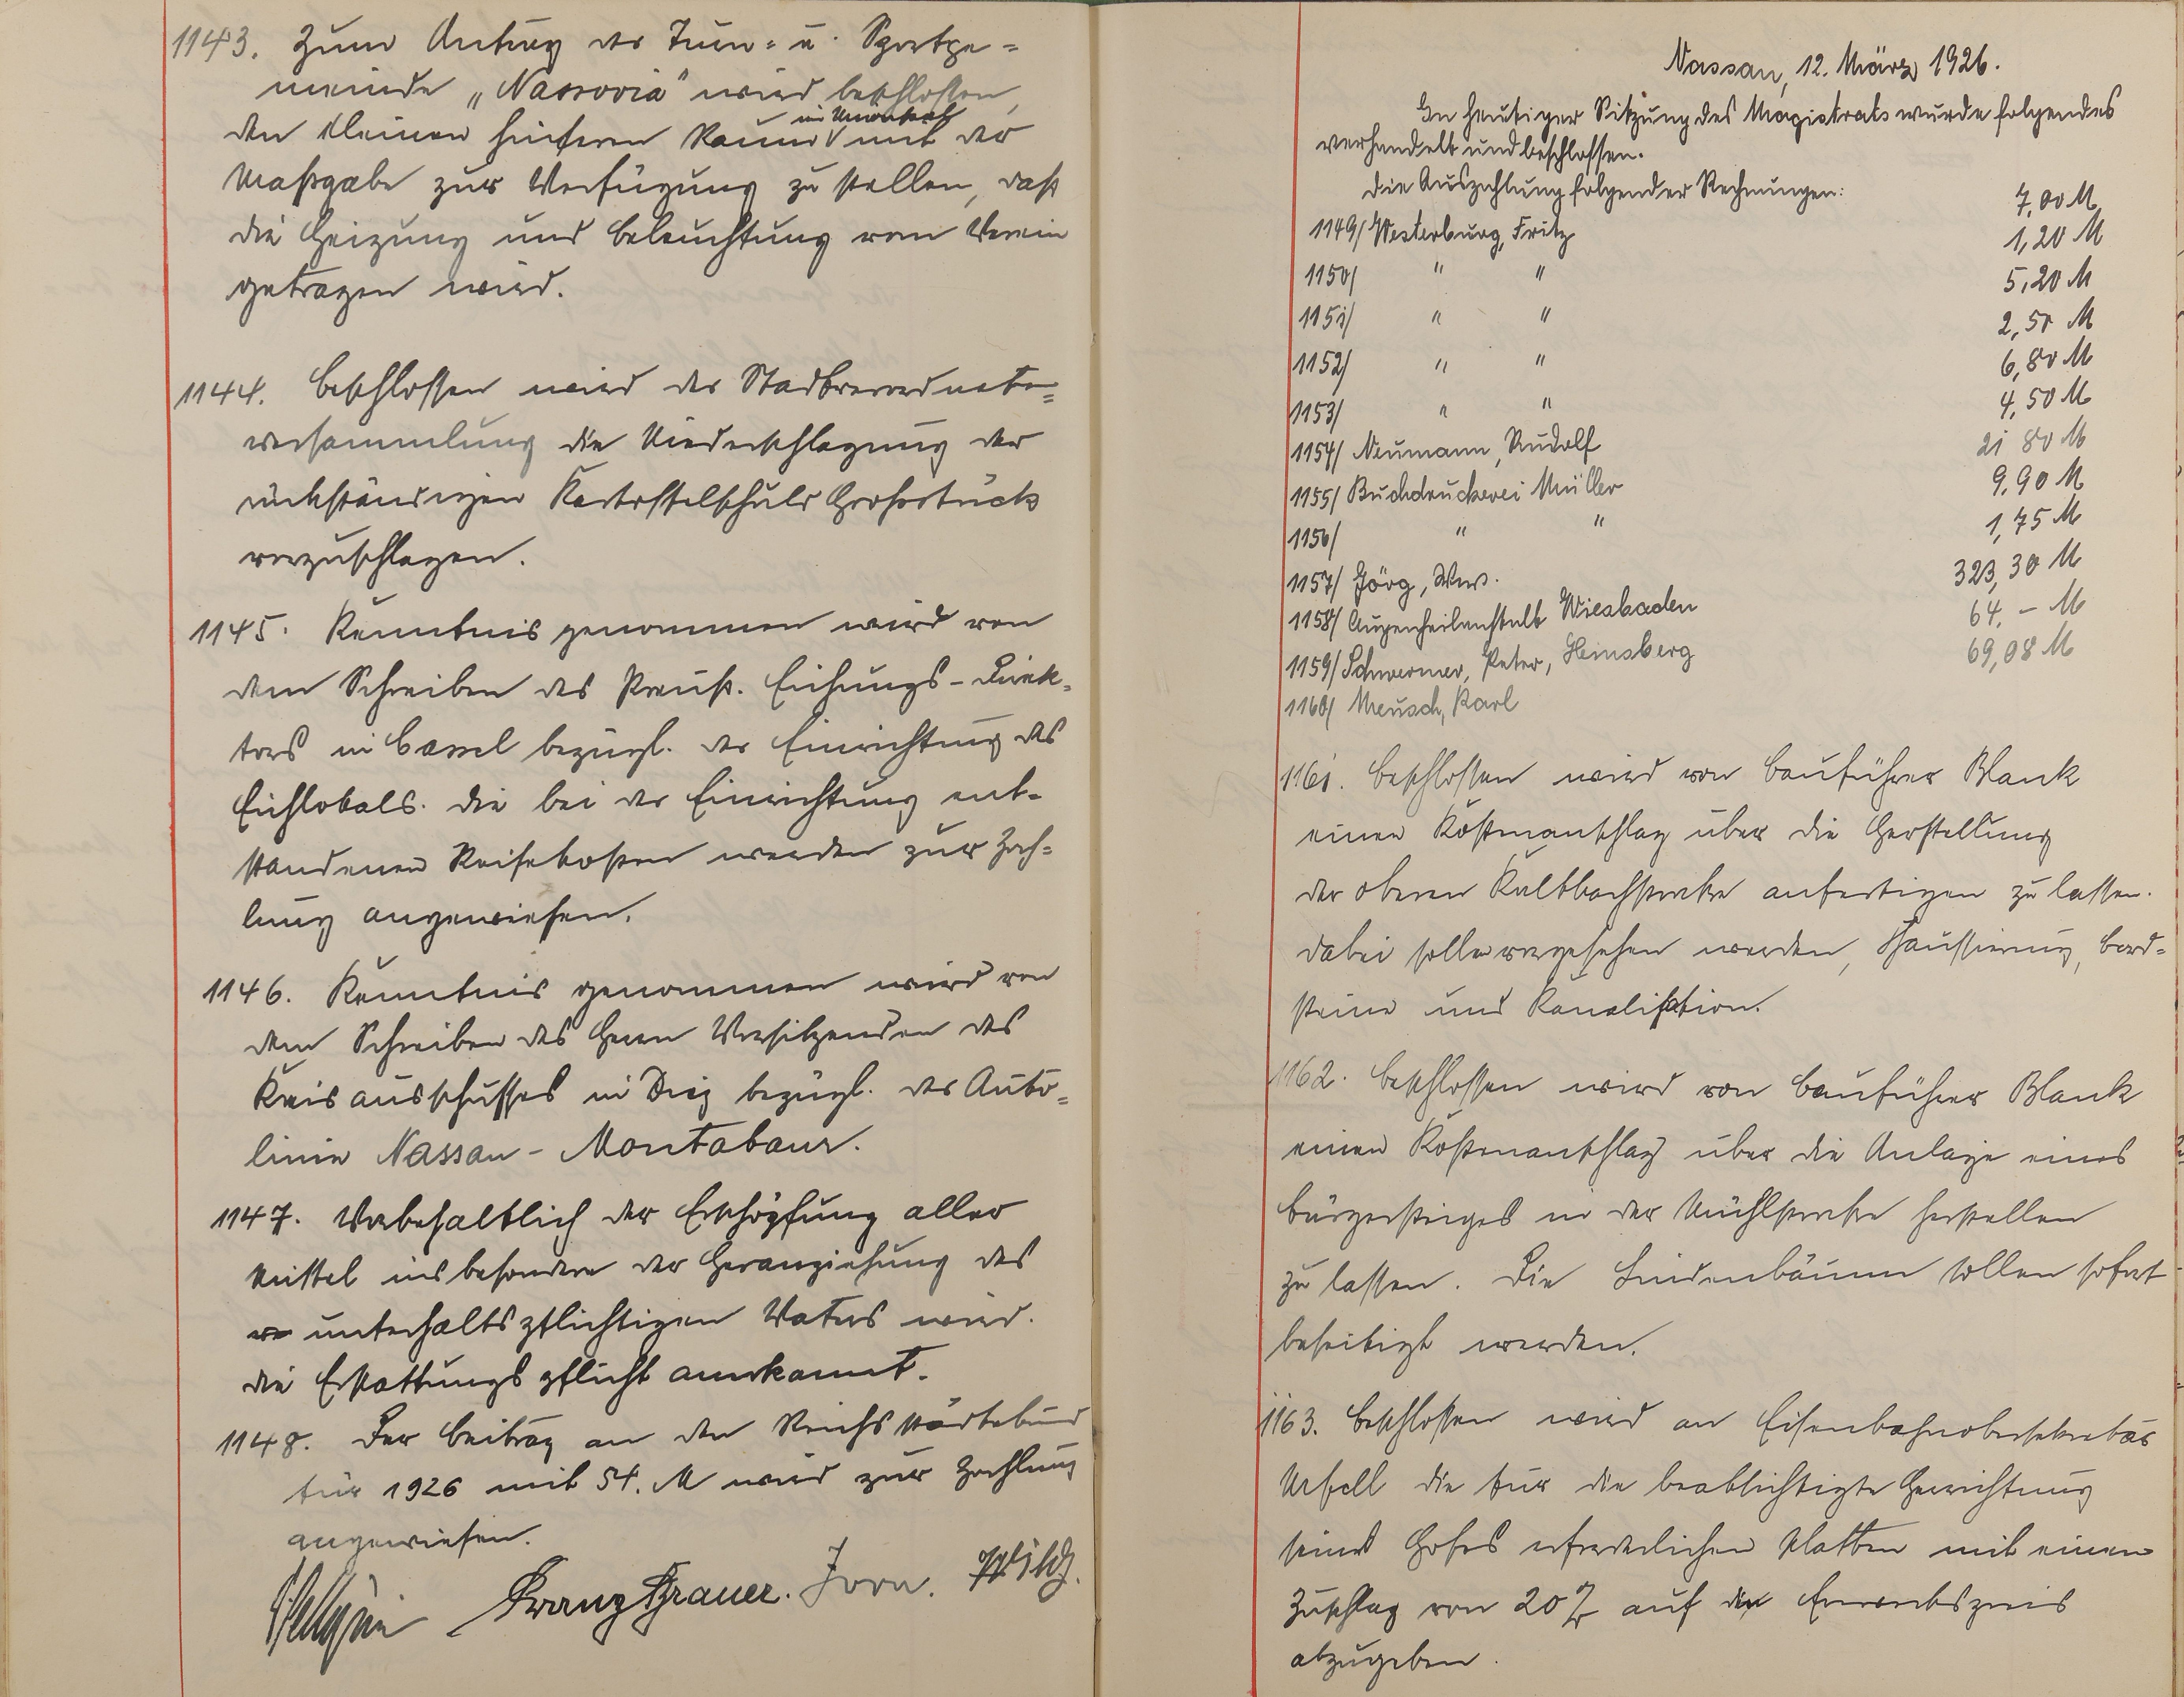 1143. Zum Antrag der Turn- u. Sportge-
meinde „Nassovia" wird beschlossen,
den kleinen hinteren Raum im Umbau mit der
Maßgabe zur Verfügung zu stellen, daß
die Heizung und Beleuchtung vom Verein
getragen wird.
1144. Beschlossen wird der Stadtverordneten-
versammlung die Niederschlagung der
rückständigen Kartoffelschuld
vorzuschlagen.
1145. Kenntnis genommen wird von
dem Schreiben des Preuß. Eichungs-Direk-
tors in Cassel bezügl. der Einrichtung des
Eichlokals. Die bei der Einrichtung ent-
standenen Reisekosten werden zur Zah-
lung angewiesen.
1146. Kenntnis genommen wird von
dem Schreiben des Herrn Vorsitzenden des
Kreisausschusses in Diez bezügl. der Auto-
linie Nassau - Montabaur.
1147. Vorbehaltlich der Erschöpfung aller
Mittel insbesondere der Heranziehung des
unterhaltspflichtigen Vaters wird
die Erstattungspflicht anerkannt.
1148. Der Beitrag an den Reichsstädtebund
für 1926 mit 54. M wird zur Zahlung
angewiesen.
Franz Grauer. Jorn.
Nassau, 12. März 1926.
In heutiger Sitzung des Magistrats wurde folgendes
verhandelt und beschlossen.
Die Auszahlung folgender Rechnungen:
1149/ Westerburg, Fritz 7,00 M
1150/ " " 1,20 M
1151/ " " 5,20 M
1152/ " " 2,50 M
1153/ " " 6,80 M
1154/ Neumann, Rudolf 4,50 M
1155/ Buchdruckerei Müller 21 80 M
1156/ " " 9,90 M
1157/ Jörg, Ww. 1,75 M
1158/ Augenheilanstalt Wiesbaden 323,30 M
1159/ Schwermer, Peter, Heinsberg 64,- M
1160/ Meusch, Karl 69,08 M
1161. Beschlossen wird von Bauführer Blank
einen Kostenanschlag über die Herstellung
der oberen Kaltbachstraße anfertigen zu lassen.
Dabei sollen vorgesehen werden, Chaussierung, Bord-
steine und Kanalisation.
1162. Beschlossen wird von Bauführer Blank
einen Kostenanschlag über die Anlage eines
Bürgersteiges in der Mühlstraße herstellen
zu lassen. Die Lindenbäume sollen sofort
beseitigt werden.
1163. Beschlossen wird an Eisenbahnobersekretär
Ursell die für die beabsichtigte Herrichtung
seines Hofes erforderlichen Platten mit einem
Zuschlag von 20% auf den Erwerbspreis
abzugeben.